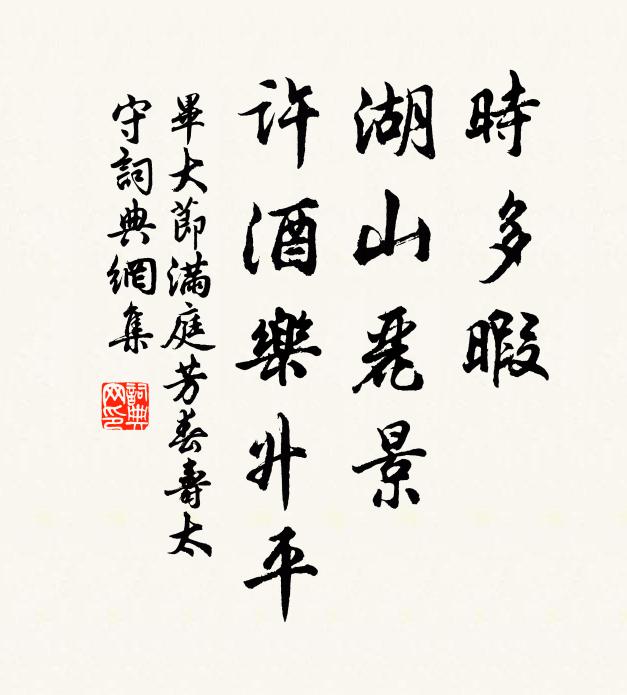 時多暇
湖山麗景
許酒樂升平
畢大節滿庭芳春壽太
守詞典網集
詞典網印